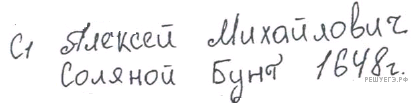 С1 Алексей Михайлович
Соляной Бунт 1648г.
РЕШУЕГЭ.РФ